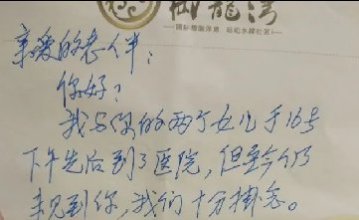 仙龍湾
亲爱的老伴：
你好！
我与你的两个女儿于16号
下午先后到了医院，但至今仍
未见到你，我们十分掛念。